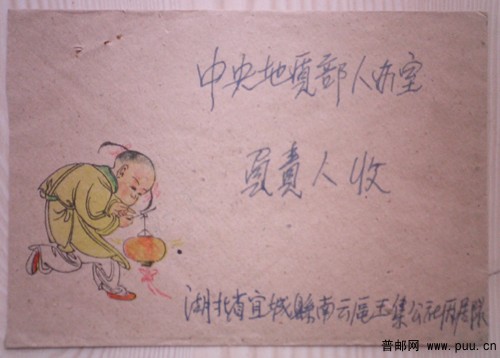 中央地質部人办室
負責人收
湖北省宜城縣南云區王集公社
普邮网 www.puu.cn